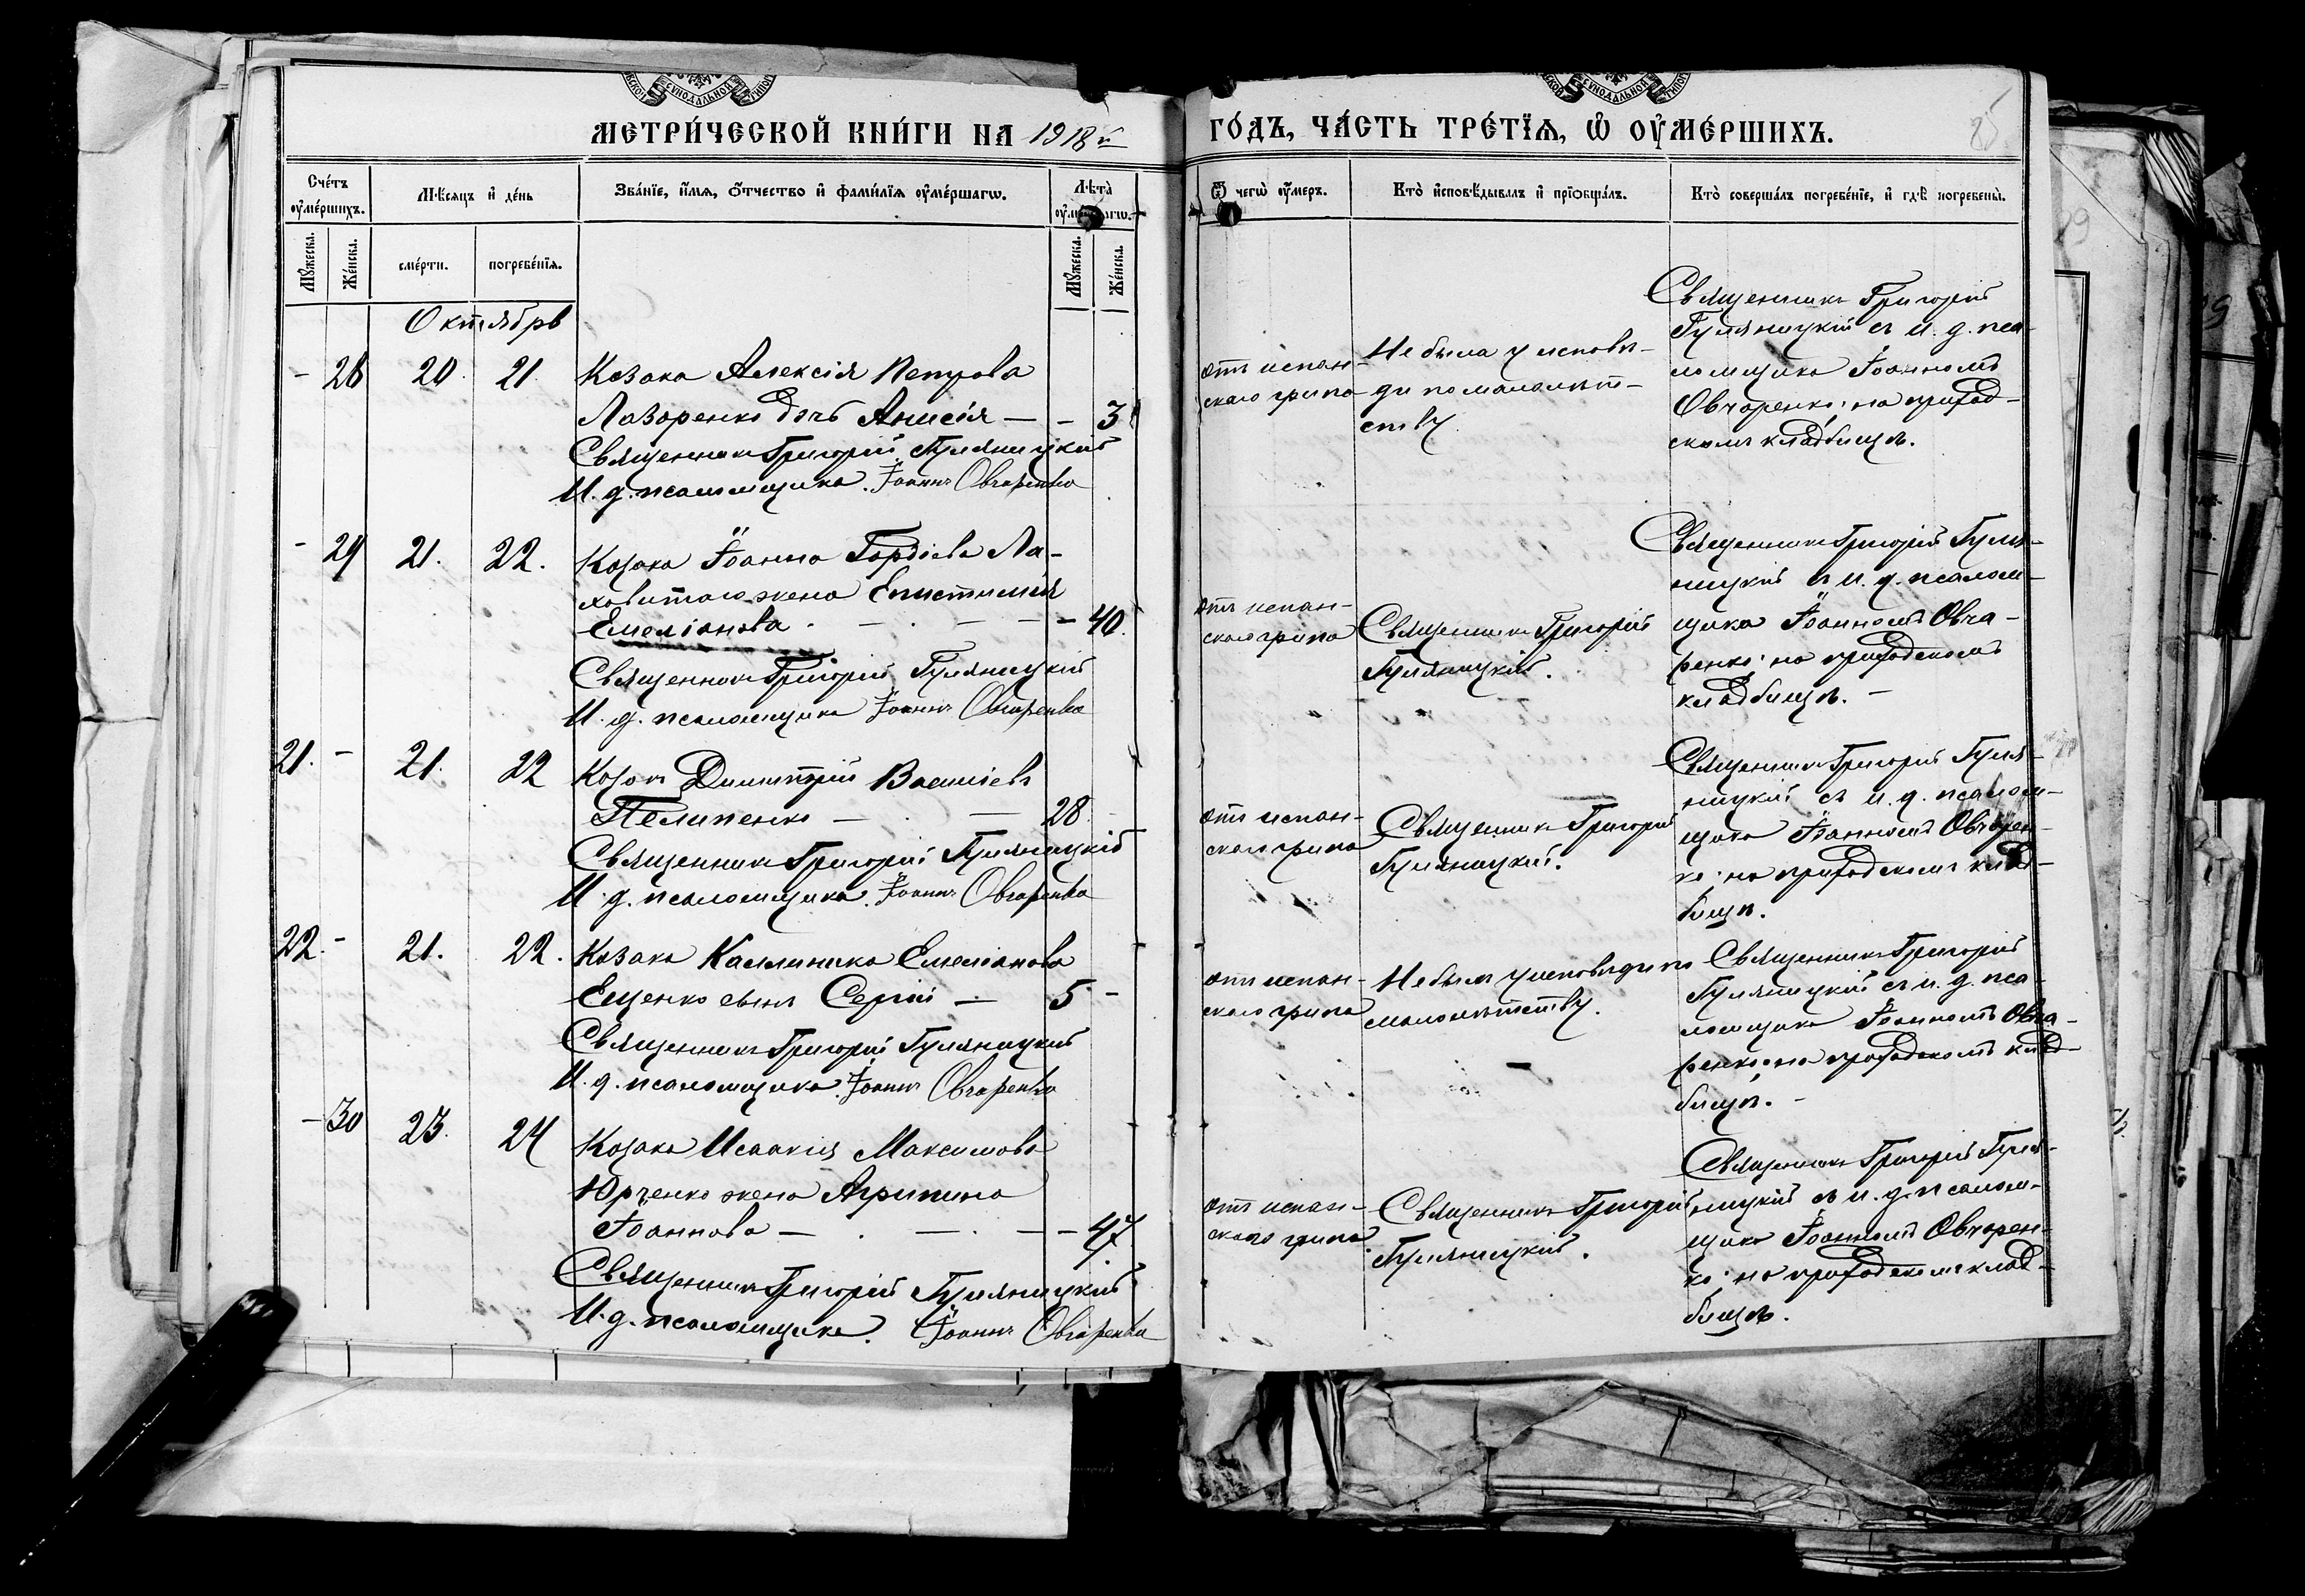 МЕТРИ́ЧЕСКОЙ КНИ́ГИ НА 1918й
ГО́ДЪ, ЧА́СТЬ ТРЕ́ТІѦ, Ѡ҆ ОУ҆МЕ́РШИХЪ.
25
Сче́тъ оу҆ме́ршихъ.
Мѣ́сяцъ и҆ де́нь
Зва́нїе, и҆́мя, ѻ҆́тчество и҆ фами́лїя оу҆ме́ршагѡ.
Лѣ́та
Ѿ чегѡ̀ оу҆́меръ.
Кто̀ и҆сповѣ́дывалъ и҆ прїѻбща́лъ.
Кто̀ соверша́лъ погребе́нїе, и҆ гдѣ̀ погребены̀.
Мꙋ́жеска.
Же́нска.
сме́рти.
погребе́нїя.
Мꙋ́жеска.
Же́нска.
Октябрь
- 28 20. 21. Козака Алексія Петрова
Лазоренко дочь Анисія — - 3
Священникъ Григорій Гуляницкій
И. д. псаломщика Іоаннъ Овчаренко
отъ испан-
скаго грипа
Не была у испові-
ди по малолѣт-
ству.
Священникъ Григорій
Гуляницкій съ и. д. пса-
ломщика Іоанномъ
Овчаренко; на приход-
скомъ кладбищѣ.
- 29 21. 22. Козака Іоанна Гордіева Ла-
ховитаго жена Епистимія
Емеліанова. — - 40.
Священникъ Григорій Гуляницкій
И. д. псаломщика Іоаннъ Овчаренко
отъ испан-
скаго грипа
Священникъ Григорій
Гуляницкій.
Священникъ Григорій Гуля-
ницкій съ и. д. псалом-
щика Іоанномъ Овча-
ренко; на приходскомъ
кладбищѣ. —
21. - 21. 22 Козакъ Димитрій Васильевъ
Пелипенко — 28 -
Священникъ Григорій Гуляницкій
И. д. псаломщика Іоаннъ Овчаренко
отъ испан-
скаго грипа
Священникъ Григорій
Гуляницкій.
Священникъ Григорій Гуля-
ницкій съ и. д. псалом-
щика Іоанномъ Овчарен-
ко; на приходскомъ клад-
бищѣ.
22. - 21. 22. Козака Каллиника Емеліанова
Ещенко сынъ Сергій — 5 -
Священникъ Григорій Гуляницкій
И. д. псаломщика Іоаннъ Овчаренко
отъ испан-
скаго грипа
Не былъ у исповѣди по
малолѣтству.
Священникъ Григорій
Гуляницкій съ и. д. пса-
ломщика Іоанномъ Овча-
ренко; на приходскомъ клад-
бищѣ. -
- 30 23. 24 Козака Исаакія Максимова
Юрченко жена Агрипина
Іоаннова — - 47.
Священникъ Григорій Гуляницкій
И. д. псаломщика. Іоаннъ Овчаренко
отъ испан-
скаго грипа.
Священникъ Григорій
Гуляницкій.
Священникъ Григорій Гуля-
ницкій съ и. д. псалом-
щика Іоанномъ Овчарен-
ко; на приходскомъ клад-
бищѣ.